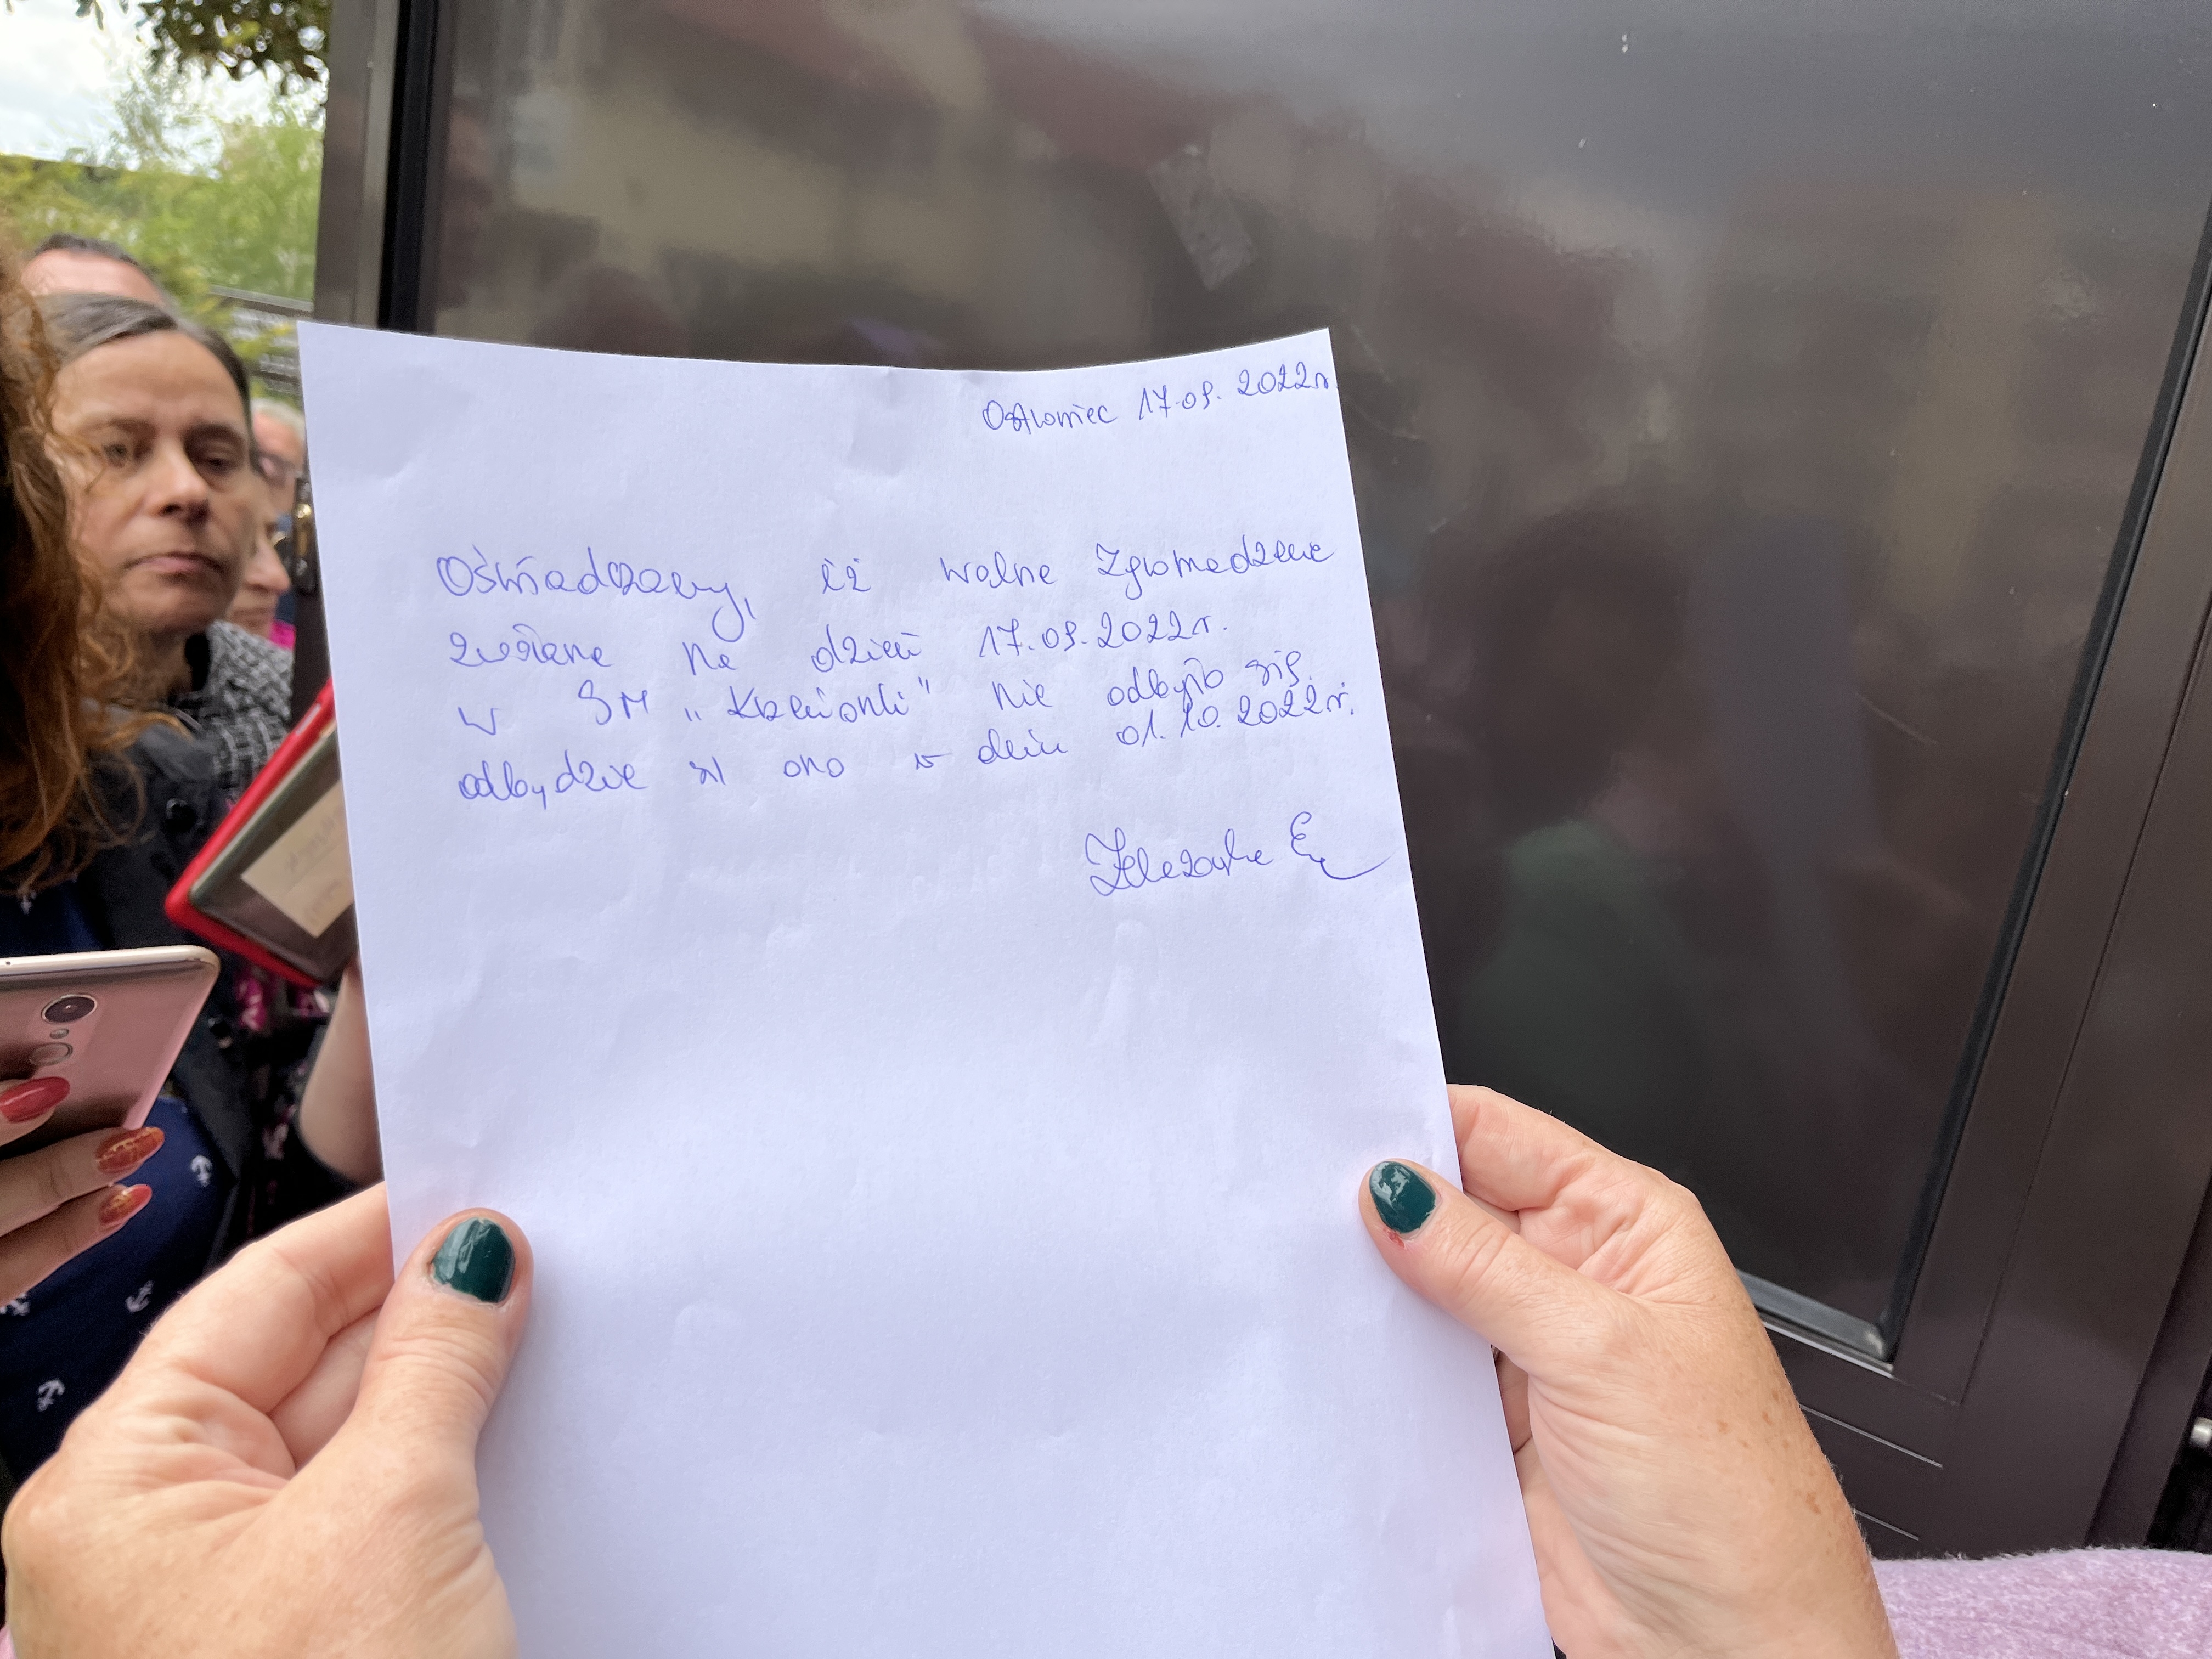 Ostrowiec 17.09.2022r
Oświadczamy, iż walne Zgromadzenie
zwołane na dzień 17.09.2022r.
w SM „Krzemionki" nie odbyło się.
odbędzie się ono w dniu 01.10.2022r.